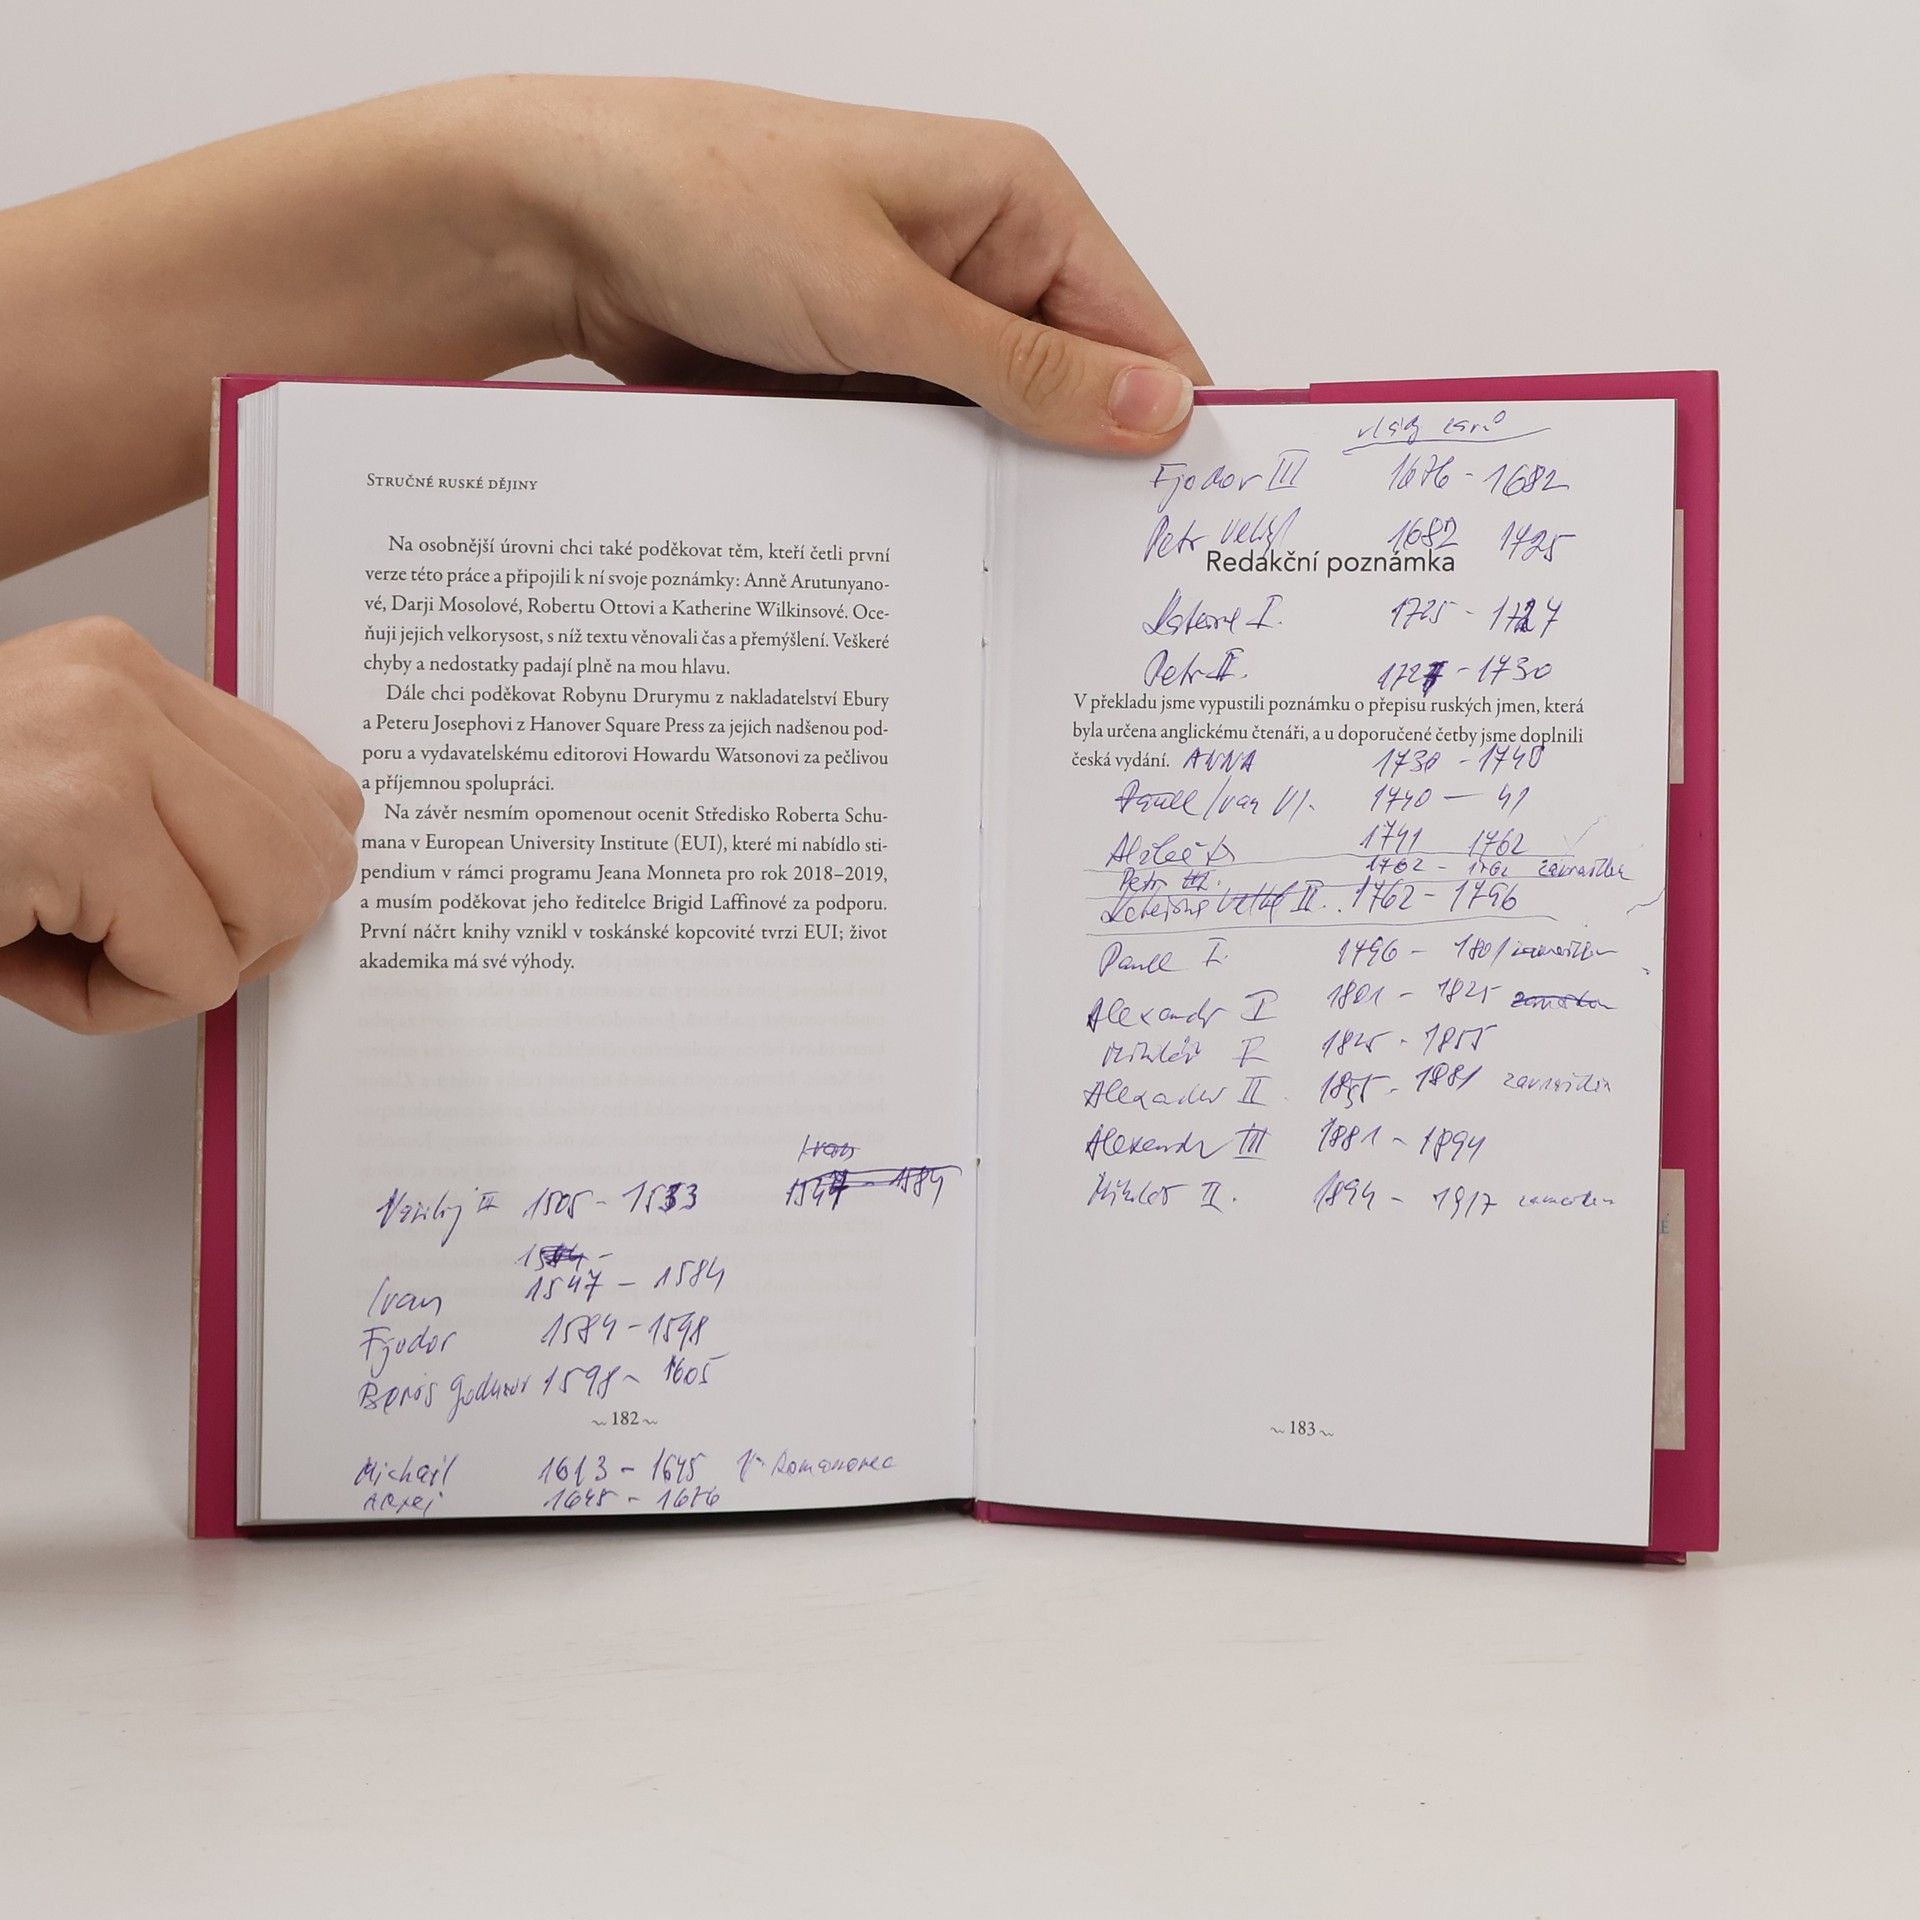 STRUČNÉ RUSKÉ DĚJINY
Na osobnější úrovni chci také poděkovat těm, kteří četli první
verze této práce a připojili k ní svoje poznámky: Anně Arutunyano-
vé, Darji Mosolové, Robertu Ottovi a Katherine Wilkinsové. Oce-
ňuji jejich velkorysost, s níž textu věnovali čas a přemýšlení. Veškeré
chyby a nedostatky padají plně na mou hlavu.
Dále chci poděkovat Robynu Drurymu z nakladatelství Ebury
a Peteru Josephovi z Hanover Square Press za jejich nadšenou pod-
poru a vydavatelskému editorovi Howardu Watsonovi za pečlivou
a příjemnou spolupráci.
Na závěr nesmím opomenout ocenit Středisko Roberta Schu-
mana v European University Institute (EUI), které mi nabídlo sti-
pendium v rámci programu Jeana Monneta pro rok 2018–2019,
a musím poděkovat jeho ředitelce Brigid Laffinové za podporu.
První náčrt knihy vznikl v toskánské kopcovité tvrzi EUI; život
akademika má své výhody.
Ivan
1547 - 1584
Vasilij III 1505 - 1533
Ivan 1547 - 1584
Fjodor 1584 - 1598
Boris Godunov 1598 - 1605
182
Michajl 1613 - 1645
Alexej 1645 - 1676
vlády carů
Fjodor III 1676 - 1682
Petr Veliký 1682 1725
Redakční poznámka
I. 1725 - 1727
Petr II. 1727 - 1730
V překladu jsme vypustili poznámku o přepisu ruských jmen, která
byla určena anglickému čtenáři, a u doporučené četby jsme doplnili
česká vydání. ANNA 1730 - 1740
Pavel Ivan VI. 1740 - 41
1741 1762
Petr III. 1762 - 1762
II. 1762 - 1796
Pavel I. 1796 - 1801
Alexandr I 1801 - 1825
Mikuláš I 1825 - 1855
Alexandr II 1855 - 1881 zavražděn
Alexandr III 1881 - 1894
Mikuláš II. 1894 - 1917
183